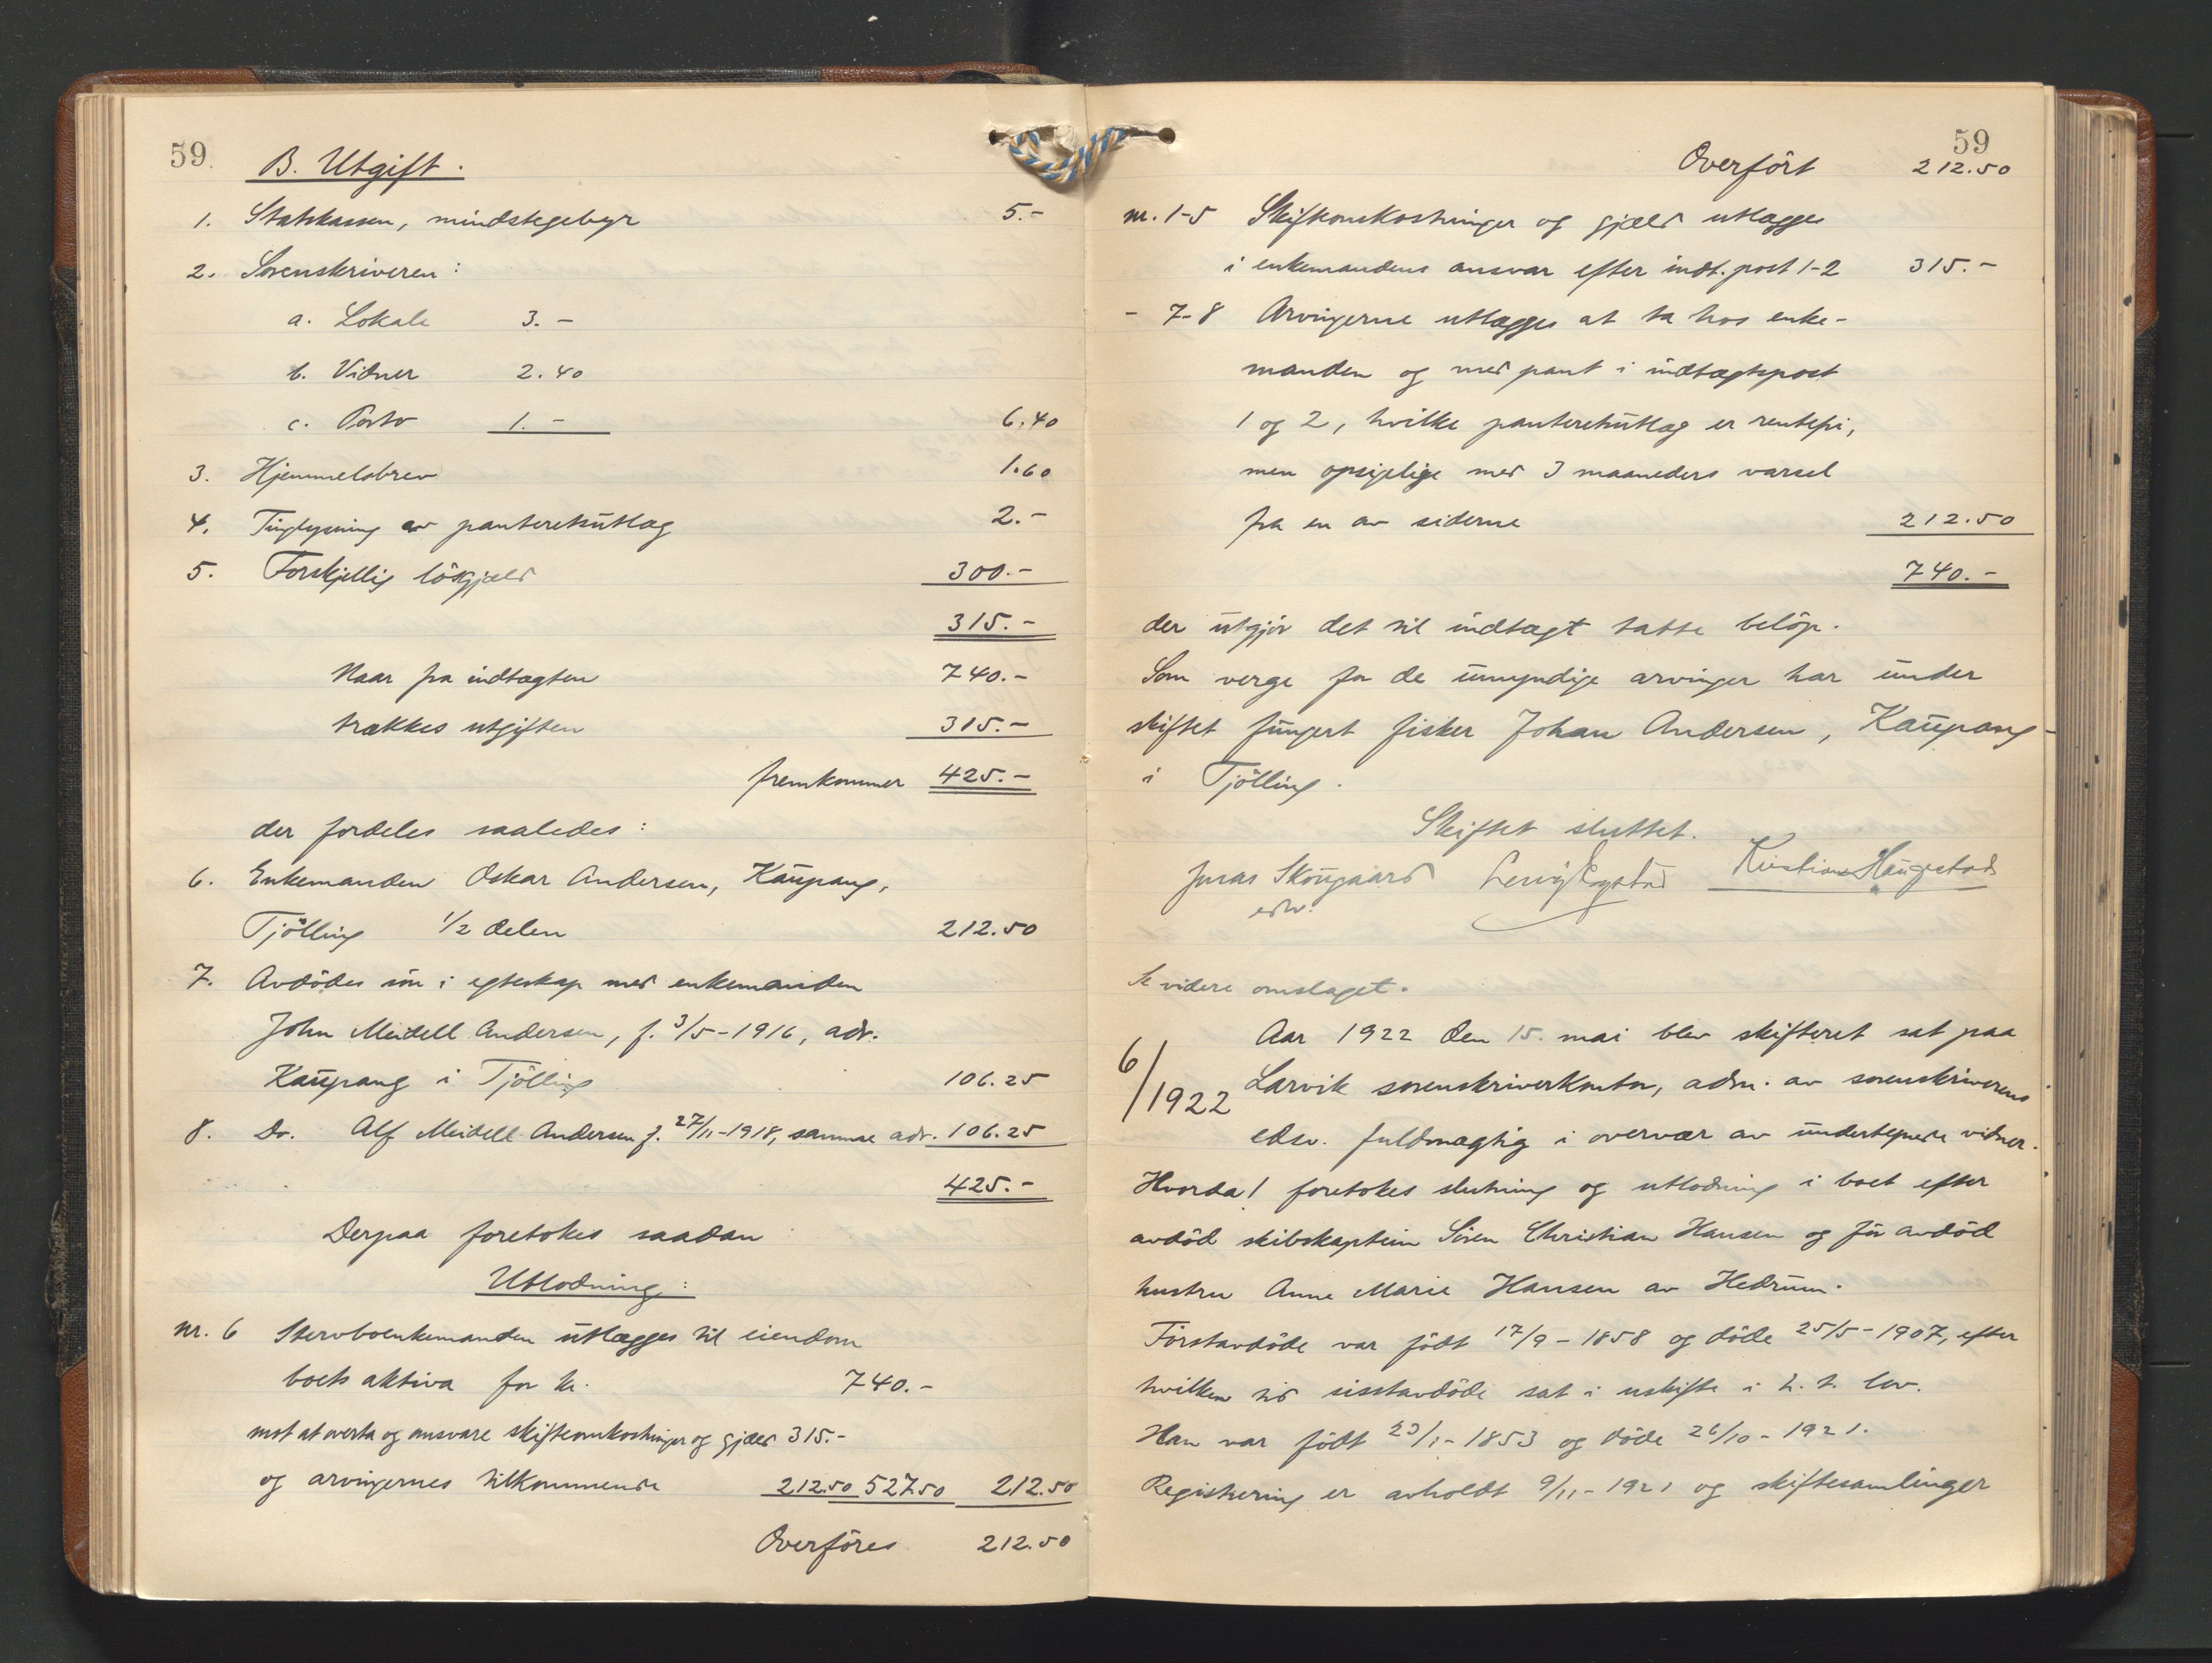 59.
B. Utgift.
1. Statskassen, mindstegebyr 5.-
2. Sorenskriveren:
a. Lokale 3.-
b. Vidner 2.40
c. Porto 1.- 6.40
3. Hjemmelsbrev 1.60
4. Tinglysning av panteretsutlæg 2.-
5. Forskjellig løsgjæld 300.-
315.-
Naar fra indtægten 740.-
trækkes utgiften 315.-
fremkommer 425.-
der fordeles saaledes:
6. Enkemanden Oskar Andersen, Kaupang,
Tjølling 1/2 delen 212.50
7. Avdødes søn i egteskap med enkemanden
John Meidell Andersen, f. 3/5-1916, adr.
Kaupang i Tjølling 106.25
8. Do. Alf Meidell Andersen f. 27/11-1918, samme adr. 106.25
425.-
Derpaa foretokes saadan
Utlodning:
nr. 6 Stervboenkemanden utlægges til eiendom
boets aktiva for kr. 740.-
mot at overta og ansvare skifteomkostninger og gjæld 315.-
og arvingernes tilkommende 212.50 527.50 212.50
Overføres 212.50
59
Overført 212.50
nr. 1-5 Skifteomkostninger og gjæld utlægges
i enkemandens ansvar efter indt. post 1-2 315.-
- 7-8 Arvingerne utlægges at ta hos enke-
manden og med pant i indtægtspost
1 og 2, hvilke panteretsutlæg er rentefri,
men opsigelige med 3 maaneders varsel
fra en av siderne 212.50
740.-
der utgjør det til indtægt tatte beløp.
Som verge for de umyndige arvinger har under
skiftet fungert fisker Johan Andersen, Kaupang
i Tjølling.
Skiftet sluttet.
Jonas Skougaard Kristian Haugestad
edsv.
Se videre omslaget.
6/1922
Aar 1922 den 15. mai blev skifteret sat paa
Larvik sorenskriverkontor, adm. av sorenskriverens
edsv. fuldmægtig i overvær av undertegnede vidner.
Hvorda! foretokes slutning og utlodning i boet efter
avdød skibskaptein Sören Christian Hansen og før avdød
hustru Anne Marie Hansen av Hedrum.
Førstavdøde var født 17/9-1858 og døde 25/5-1907, efter
hvilken tid sisstavdøde sat i uskifte i h. t. lov.
Han var født 23/1-1853 og døde 26/10-1921.
Registrering er avholdt 9/11-1921 og skiftesamlinger